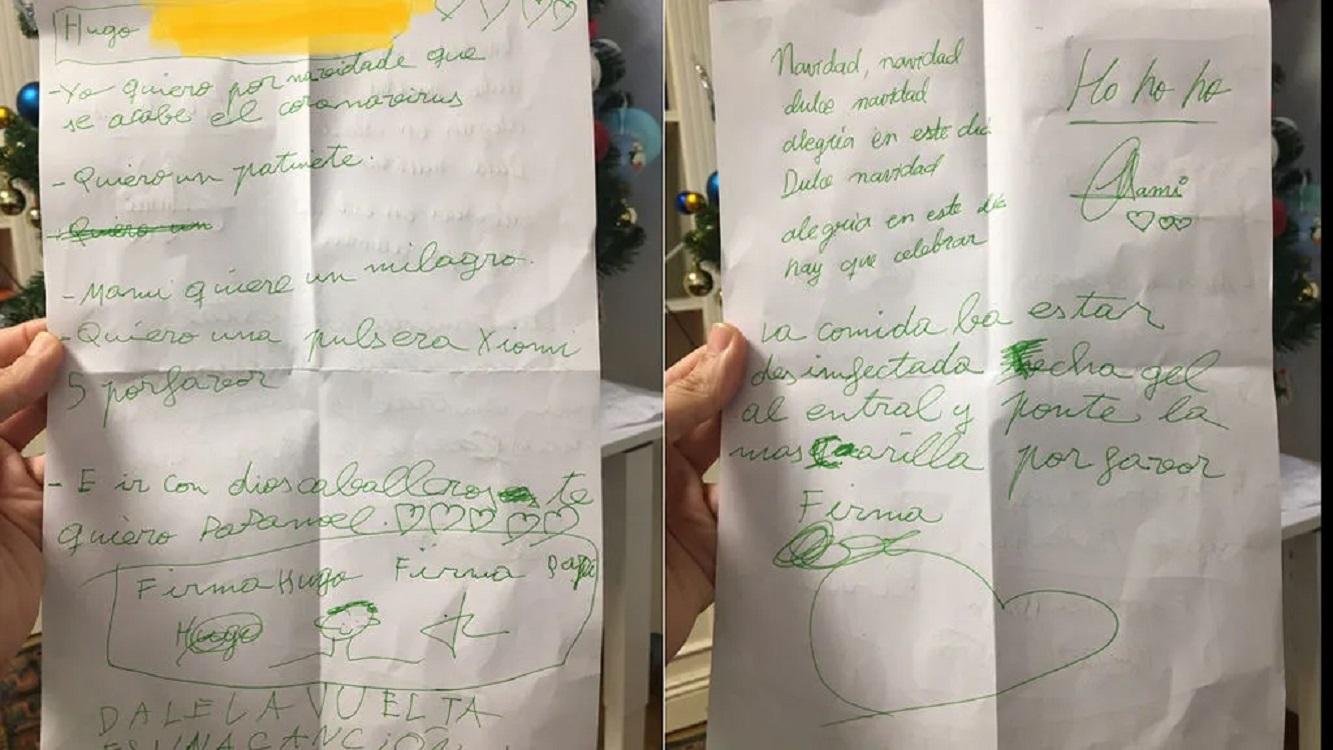 Hugo
-Yo quiero por navidade que
se acabe el coronavirus
- Quiero un patinete.
- Quiero un
- Mami quiere un milagro.
- Quiero una pulsera Xiomi
5 porfavor
- E ir con dios caballeros te
quiero PaPanoel.
Firma Hugo Firma Papa
Hugo
DALE LA VUELTA
ES UNA CANCIÓN
Navidad, navidad
dulce navidad
alegria en este dia
Dulce navidad
alegria en este dia
hay que celebrar
Ho ho ho
Mami
La comida ba estar
desinfectada echa gel
al entral y ponte la
mascarilla porfavor
Firma